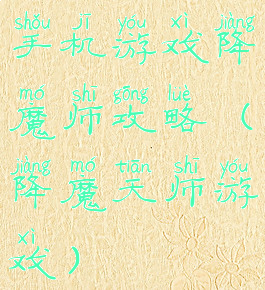 shǒu jī yóu xì jiàng
手机游戏降
mó shī gōng luè
魔师攻略（
jiàng mó tiān shī yóu
降魔天师游
xì
戏）